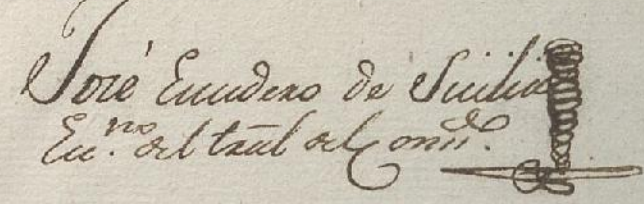 José Escudero de Sicilia
Esc.no del tral del Cons.do